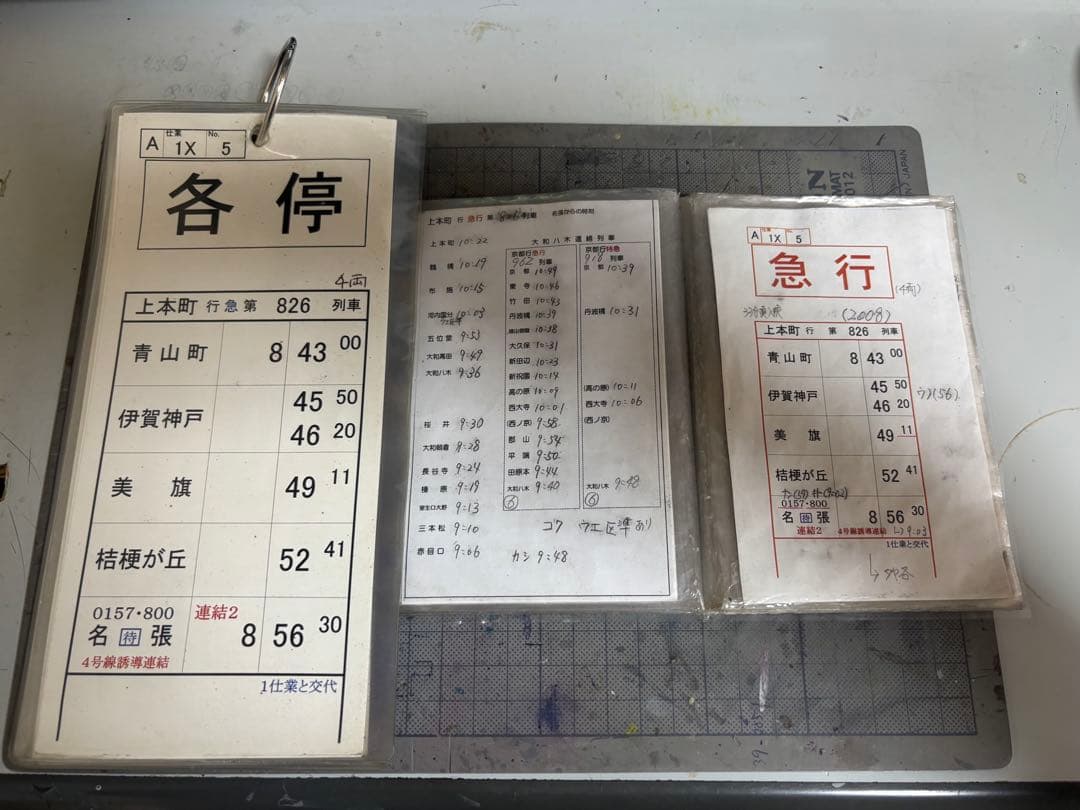 仕業 No.
A 1X 5
各停
4両
上本町 行 急 第 826 列車
青山町 8 43 00
伊賀神戸 45 50
46 20
美旗 49 11
桔梗が丘 52 41
0157・800 連結2
名 待 張 8 56 30
4号線誘導連結
1仕業と交代
上本町 行 急行 第 列車 名張からの時刻
大和八木連絡列車
上本町 10:22
鶴橋 10:19
布施 10:15
河内国分 10:03
五位堂 9:53
大和高田 9:49
大和八木 9:36
桜井 9:30
大和朝倉 9:28
長谷寺 9:24
榛原 9:19
室生口大野 9:13
三本松 9:10
赤目口 9:06
京都行急行
962 列車
京都 10:49
東寺 10:46
竹田 10:43
丹波橋 10:39
桃山御陵 10:38
大久保 10:31
新田辺 10:23
新祝園 10:14
高の原 10:09
西大寺 10:01
(西ノ京) 9:58
郡山 9:54
平端 9:50
田原本 9:44
大和八木 9:40
⑥
京都行特急
918 列車
京都 10:39
丹波橋 10:31
(高の原) 10:11
西大寺 10:06
(西ノ京)
大和八木 9:48
⑥
カシ 9:48
仕業 No.
A 1X 5
急行
(4両)
(2008)
上本町 行 第 826 列車
青山町 8 43 00
伊賀神戸 45 50
46 20
美旗 49 11
桔梗が丘 52 41
0157・800
名 待 張 8 56 30
連結2 4号線誘導連結 9:03
1仕業と交代
MAT
2012
JAPAN